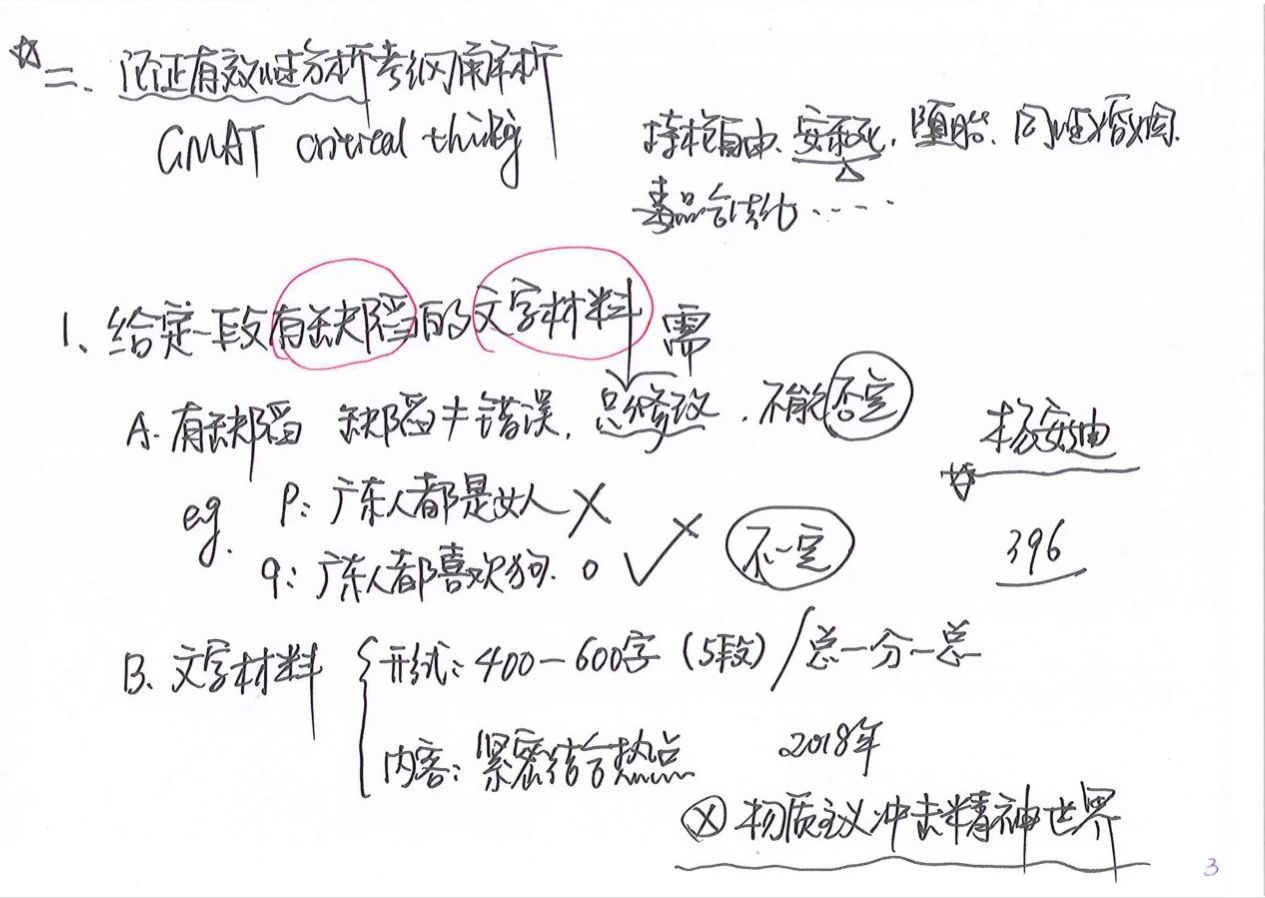 ☆二、论证有效性分析考纲解析
GMAT critical thinking
持枪自由、安乐死、堕胎、同性婚姻.
毒品合法化……
1、给定一段有缺陷的文字材料
需
A. 有缺陷 缺陷≠错误, 修改, 不能否定
杨安迪
eg. P: 广东人都是女人 ×
q: 广东人都喜欢狗. 0 ✓ × 不一定
396
B. 文字材料 { 形式: 400-600字 (5段) / 总-分-总
内容: 紧密结合热点
2018年
ⓧ 物质主义冲击精神世界
3